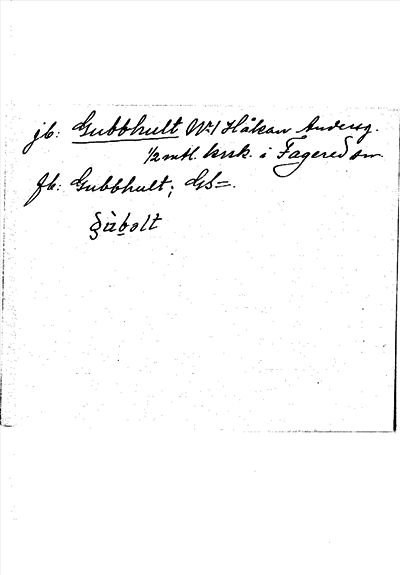 jb: Gubbhult No 1 Håkan Andersg.
1/2 mtl. krsk. i Fagered sn.
fb: Gubbhult; GS=.
g̨ùb̲olt